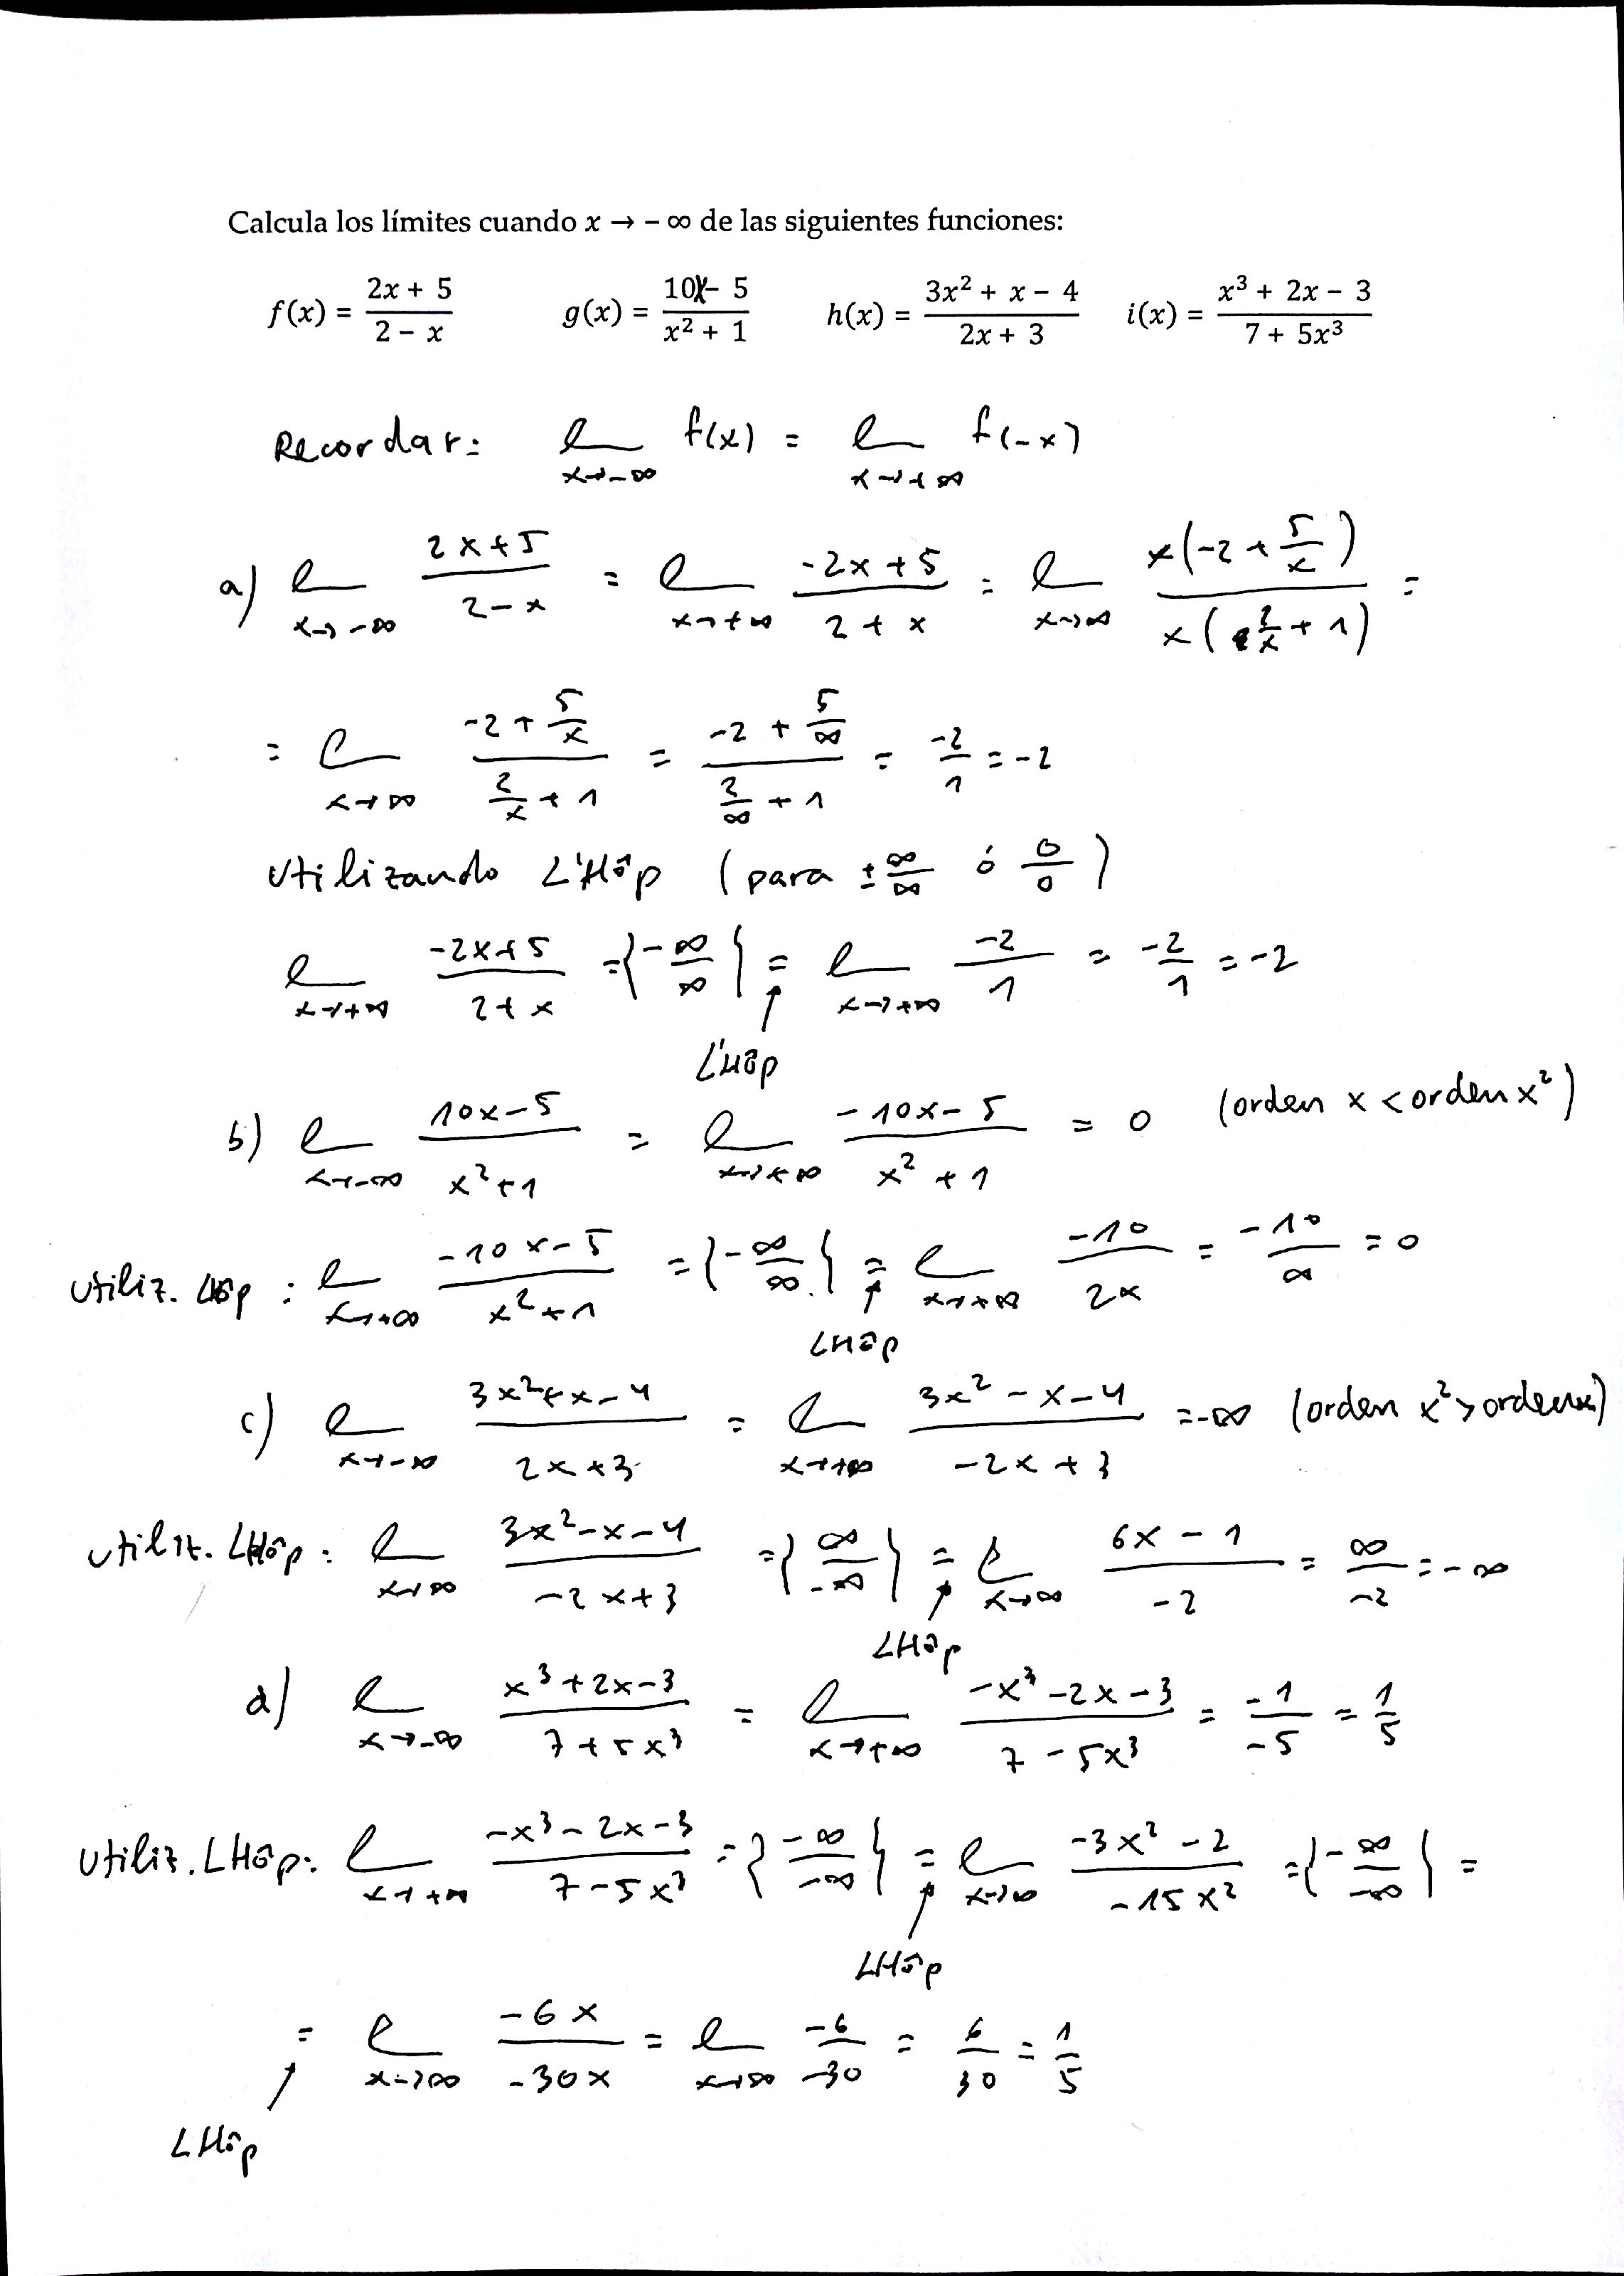 Calcula los límites cuando x → − ∞ de las siguientes funciones:
f(x) = (2x + 5)/(2 − x)    g(x) = (10x − 5)/(x² + 1)    h(x) = (3x² + x − 4)/(2x + 3)    i(x) = (x³ + 2x − 3)/(7 + 5x³)
Recordar: l_{x→−∞} f(x) = l_{x→+∞} f(−x)
a) l_{x→−∞} (2x+5)/(2−x) = l_{x→+∞} (−2x+5)/(2+x) = l_{x→∞} x(−2+5/x)/x(2/x+1) =
= l_{x→∞} (−2+5/x)/(2/x+1) = (−2+5/∞)/(2/∞+1) = −2/1 = −2
Utilizando L'Hôp (para ±∞/∞ ó 0/0)
l_{x→+∞} (−2x+5)/(2+x) = {−∞/∞} = l_{x→+∞} −2/1 = −2/1 = −2
↑ L'Hôp
b) l_{x→−∞} (10x−5)/(x²+1) = l_{x→+∞} (−10x−5)/(x²+1) = 0 (orden x < orden x²)
Utiliz. LHôp : l_{x→+∞} (−10x−5)/(x²+1) = {−∞/∞} = l_{x→+∞} −10/2x = −10/∞ = 0
↑ LHôp
c) l_{x→−∞} (3x²+x−4)/(2x+3) = l_{x→+∞} (3x²−x−4)/(−2x+3) = −∞ (orden x² > orden x)
Utiliz. LHôp : l_{x→∞} (3x²−x−4)/(−2x+3) = {∞/−∞} = l_{x→∞} (6x−1)/−2 = ∞/−2 = −∞
↑ LHôp
d) l_{x→−∞} (x³+2x−3)/(7+5x³) = l_{x→+∞} (−x³−2x−3)/(7−5x³) = −1/−5 = 1/5
Utiliz. LHôp: l_{x→+∞} (−x³−2x−3)/(7−5x³) = {−∞/−∞} = l_{x→∞} (−3x²−2)/(−15x²) = {−∞/−∞} =
↑ LHôp
= l_{x→∞} −6x/−30x = l_{x→∞} −6/−30 = 6/30 = 1/5
↑ LHôp